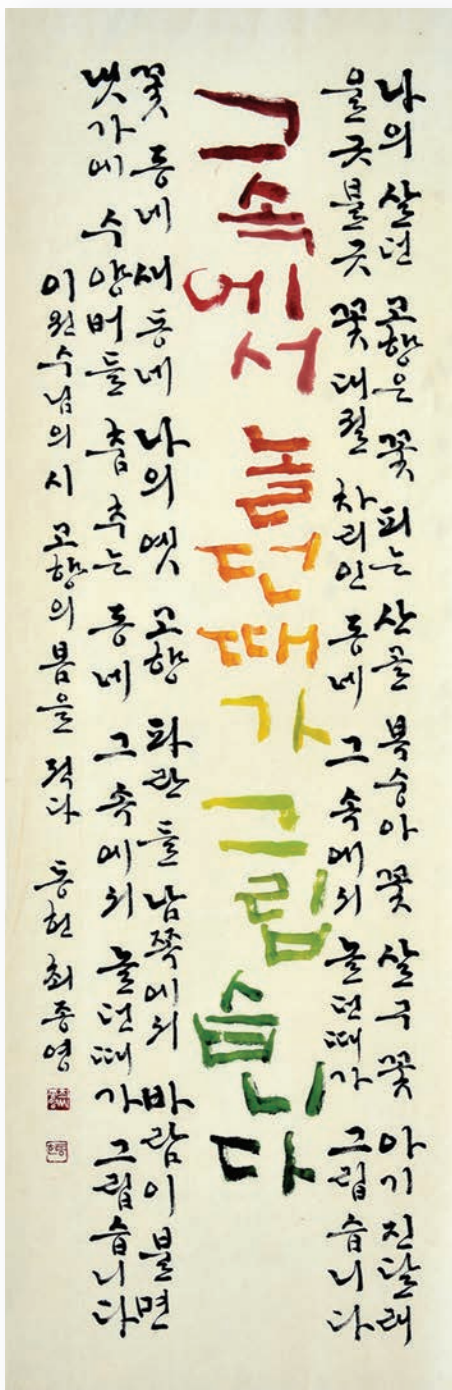 나의 살던 고향은 꽃 피는 산골 복숭아 꽃 살구 꽃 아기 진달래
울긋불긋 꽃 대궐 차리인 동네 그 속에서 놀던때가 그립습니다
그속에서 놀던때가 그립습니다
꽃 동네 새 동네 나의 옛 고향 파란 들 남쪽에서 바람이 불면
냇가에 수양버들 춤 추는 동네 그 속에서 놀던때가 그립습니다
이원수님의 시 고향의 봄을 적다 동헌 최종영